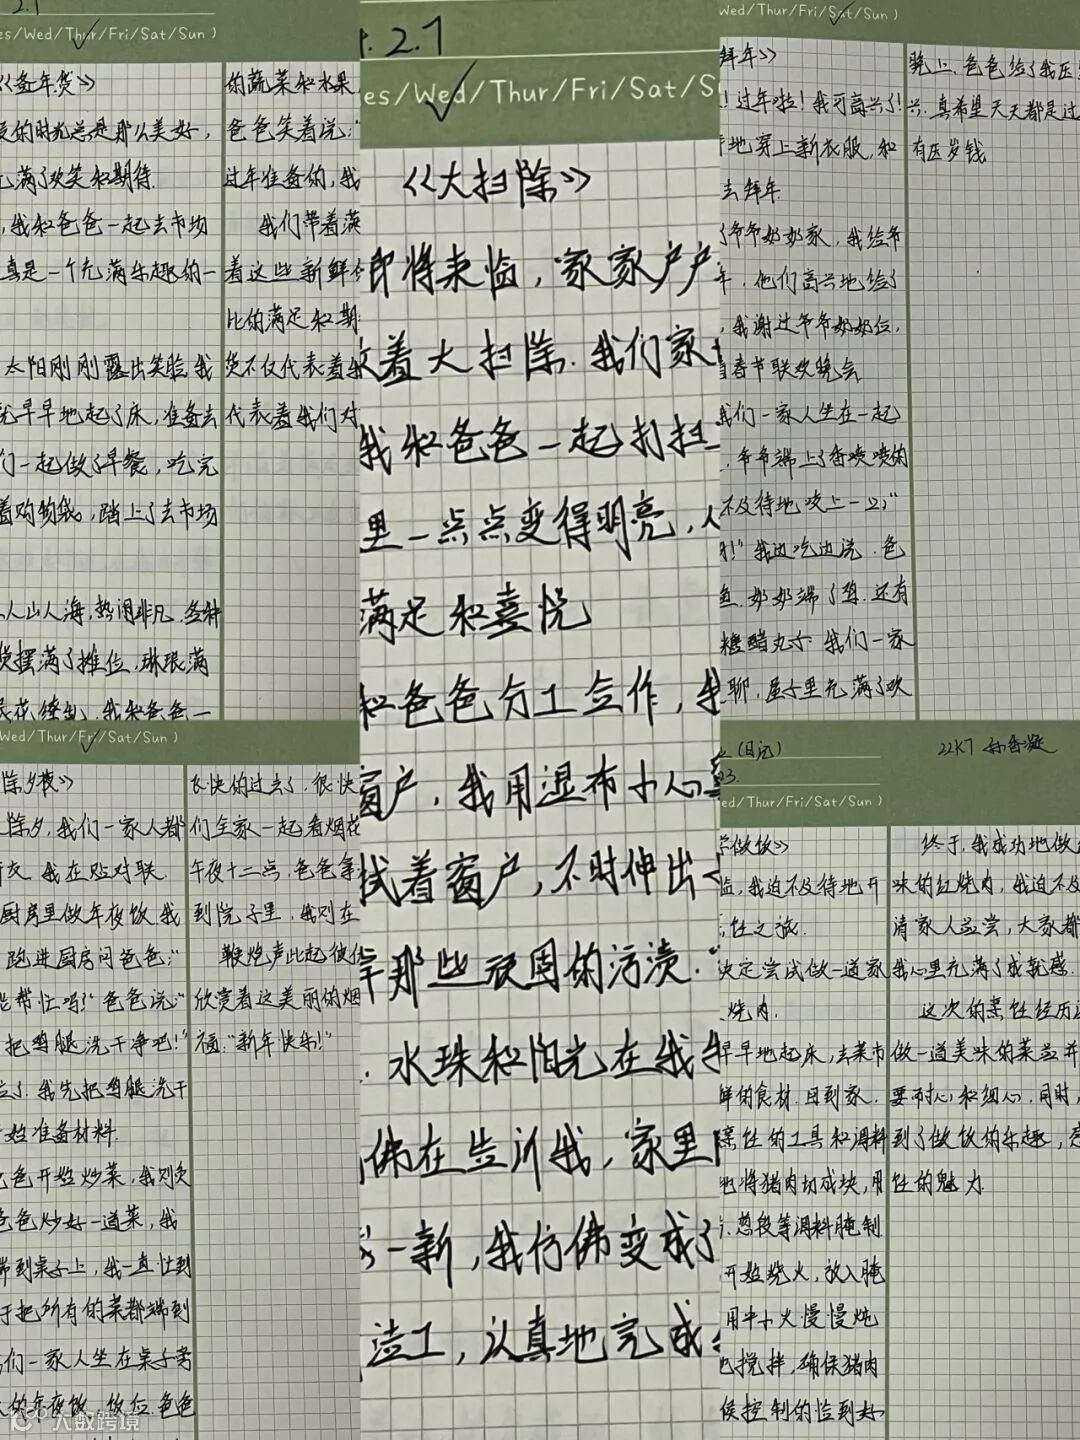 2.1
es/Wed/Thur/Fri/Sat/Sun)
《备年货》
的时光总是那么美好，
满了欢笑和期待.
，我和爸爸一起去市场
真是一个充满乐趣的一
太阳刚刚露出笑脸，我
早早地起了床，准备去
们一起做了早餐，吃完
着购物袋，踏上了去市场
人山人海，热闹非凡.各种
摆满了摊位，琳琅满
花缭乱，我和爸爸一
的蔬菜和水果
爸爸笑着说：“
过年准备的，我
我们带着满
着这些新鲜
比的满足和期
货不仅代表着
代表着我们对
2.1
es/Wed/Thur/Fri/Sat/S
《大扫除》
即将来临，家家户户
着大扫除.我们家
我和爸爸一起打扫
里一点点变得明亮，
满足和喜悦
和爸爸分工合作，我
窗户，我用湿布小心翼
拭着窗户，不时伸出
那些顽固的污渍.
.水珠和阳光在我
佛在告诉我，家里
一新，我仿佛变成了
洁工，认真地完成
Wed/Thur/Fri/Sat/Sun)
拜年》
！过年啦！我可高兴了！
地穿上新衣服，和
去拜年.
了爷爷奶奶家，我给爷
年，他们高兴地给了
，我谢过爷爷奶奶后，
看春节联欢晚会
我们一家人坐在一起
，爷爷端上了香喷喷的
不及待地咬上一口，“
！”我边吃边说.爸
鱼.奶奶端了鸡.还有
糖醋丸子.我们一家
聊，屋子里充满了欢
晚上，爸爸给了我压岁
兴.真希望天天都是过
有压岁钱
Wed/Thur/Fri/Sat/Sun)
除夕夜》
除夕，我们一家人都
夜.我在贴对联
厨房里做年夜饭.我
跑进厨房问爸爸：“
帮忙吗？”爸爸说：“
把鸡腿洗干净吧！”
了.我先把鸡腿洗干
始准备材料.
爸开始炒菜，我则负
爸爸炒好一道菜，我
端到桌子上，我一直忙到
于把所有的菜都端到
们一家人坐在桌子旁
年夜饭，饭后，爸爸
飞快的过去了.很快
们全家一起看烟花
午夜十二点，爸爸拿
到院子里，我则在
鞭炮声此起彼伏
欣赏着这美丽的烟
福：“新年快乐！”
(日记)
22K7 孙香凝
3.
ed/Thur/Fri/Sat/Sun)
学做饭》
临，我迫不及待地开
饪之旅.
决定尝试做一道家
烧肉.
早早地起床，去菜市
鲜的食材.回到家.
烹饪的工具和调料
地将猪肉切成块，用
、葱段等调料腌制
开始烧火，放入腌
用中小火慢慢炖
搅拌，确保猪肉
候控制的恰到好
终于，我成功地做
味的红烧肉，我迫不及
请家人品尝，大家都
我心里充满了成就感.
这次的烹饪经历
做一道美味的菜品并
要耐心和细心.同时，
到了做饭的乐趣，
饪的魅力.
大数跨境